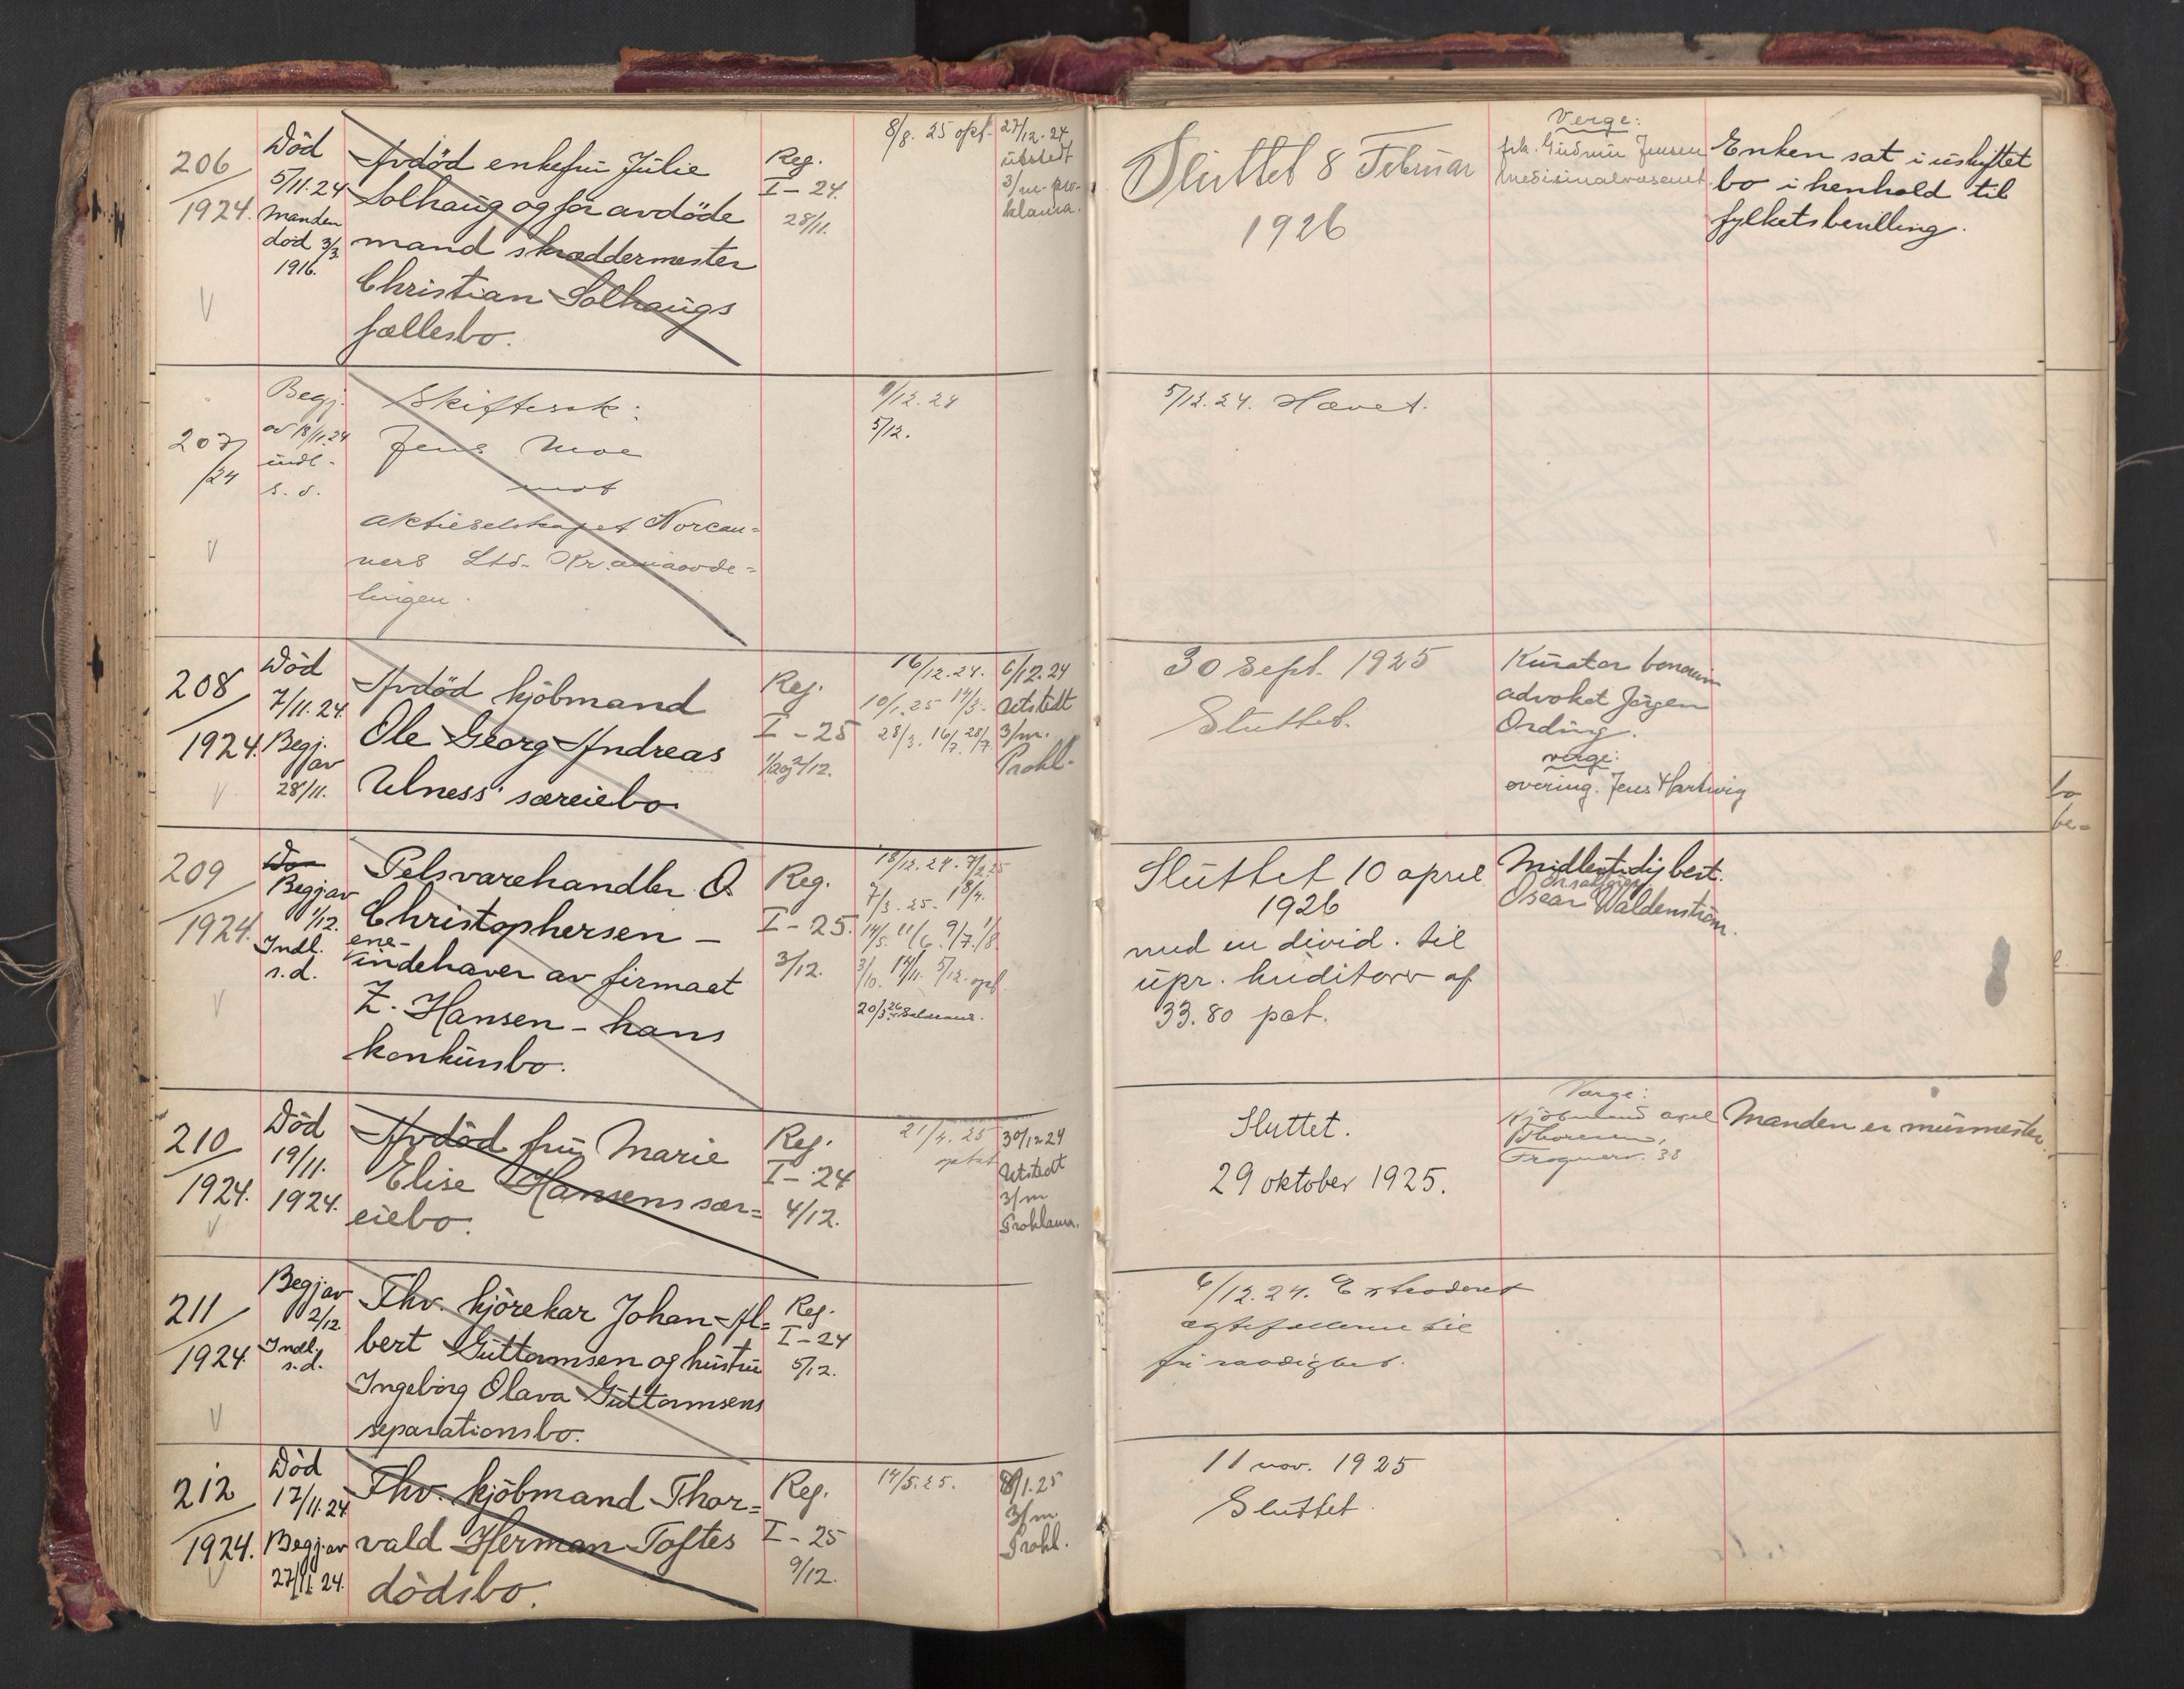 206
1924.
Död
5/11.24
Manden
död 3/3
1916.
Avdöd enkefru Julie
Solhaug og for avdöde
mand skræddermester
Christian Solhaugs
fællesbo.
Reg.
I - 24.
28/11.
8/8. 25
27/12.24
utstedt
3/m. pro-
klama.
Sluttet 8 Februar
1926
Verge:
frk. Gudrun Jensen
Enken sat i uskiftet
bo i henhold til
fylkets bevilling.
207
/24
Begj.
av 18/11.24
indl.
s. d.
Skiftesak:
Jens Moe
mot
Aktieselskapet Norcan=
ners Ltd. Kr.aniaavde=
lingen.
/12.24
5/12.
5/12.24. Hævet.
208
1924.
Död
7/11.24.
Begj.
av
28/11.
Avdöd kjöbmand
Ole Georg Andreas
Ulness' særeiebo
Reg.
I - 25
16/12.24.
10/1.25 14/3.
28/3. 16/7. 28/7.
6/12.24
Utstedt
3/m.
Prokl.
30 Sept. 1925
Sluttet.
Kurator bonorum
advokat Jörgen
Ording.
verge:
overing. Jens Hartwig
209
1924.
Begj av
1/12.
Indl.
s. d.
Pelsvarehandler O.
Christophersen -
ene-
indehaver av firmaet
Z. Hansen - hans
konkursbo.
Reg.
I - 25.
3/12.
18/12.24.
7/3. 25. 18/4.
14/5. 11/6. 9/7. 1/8
3/10. 14/11. 5/12.
20/3 26
Sluttet 10 april
1926
med en divid. til
upr. kreditorer af
33.80 pct.
Midlertidig best.
Oscar Waldenström.
210
1924.
Död
19/11.
1924.
Avdöd fru Marie
Elise Hansens sær=
eiebo.
Reg.
I - 24
4/12.
21/4. 25
30/12 24
Utstedt
3/m
Proklama.
Sluttet.
29 oktober 1925.
Værge:
Kjöbmand Axel
Thoresen,
Frognerv. 38
Manden er murmester.
211
1924.
Begj av
2/12
Indl.
s. d.
Fhv. kjörekar Johan Al=
bert Guttormsen og hustru
Ingeborg Olava Guttormsens
separationsbo.
Reg.
I - 24
5/12.
6/12.24. Extraderet
ægtefællerne til
fri raadighet.
212
1924.
Död
17/11.24
Begj. av
27/11 24.
Fhv. kjöbmand Thor=
vald Herman Toftes
dödsbo.
Reg.
I - 25
9/12.
14/5.25.
3/m
Prokl.
11 nov. 1925
Sluttet.